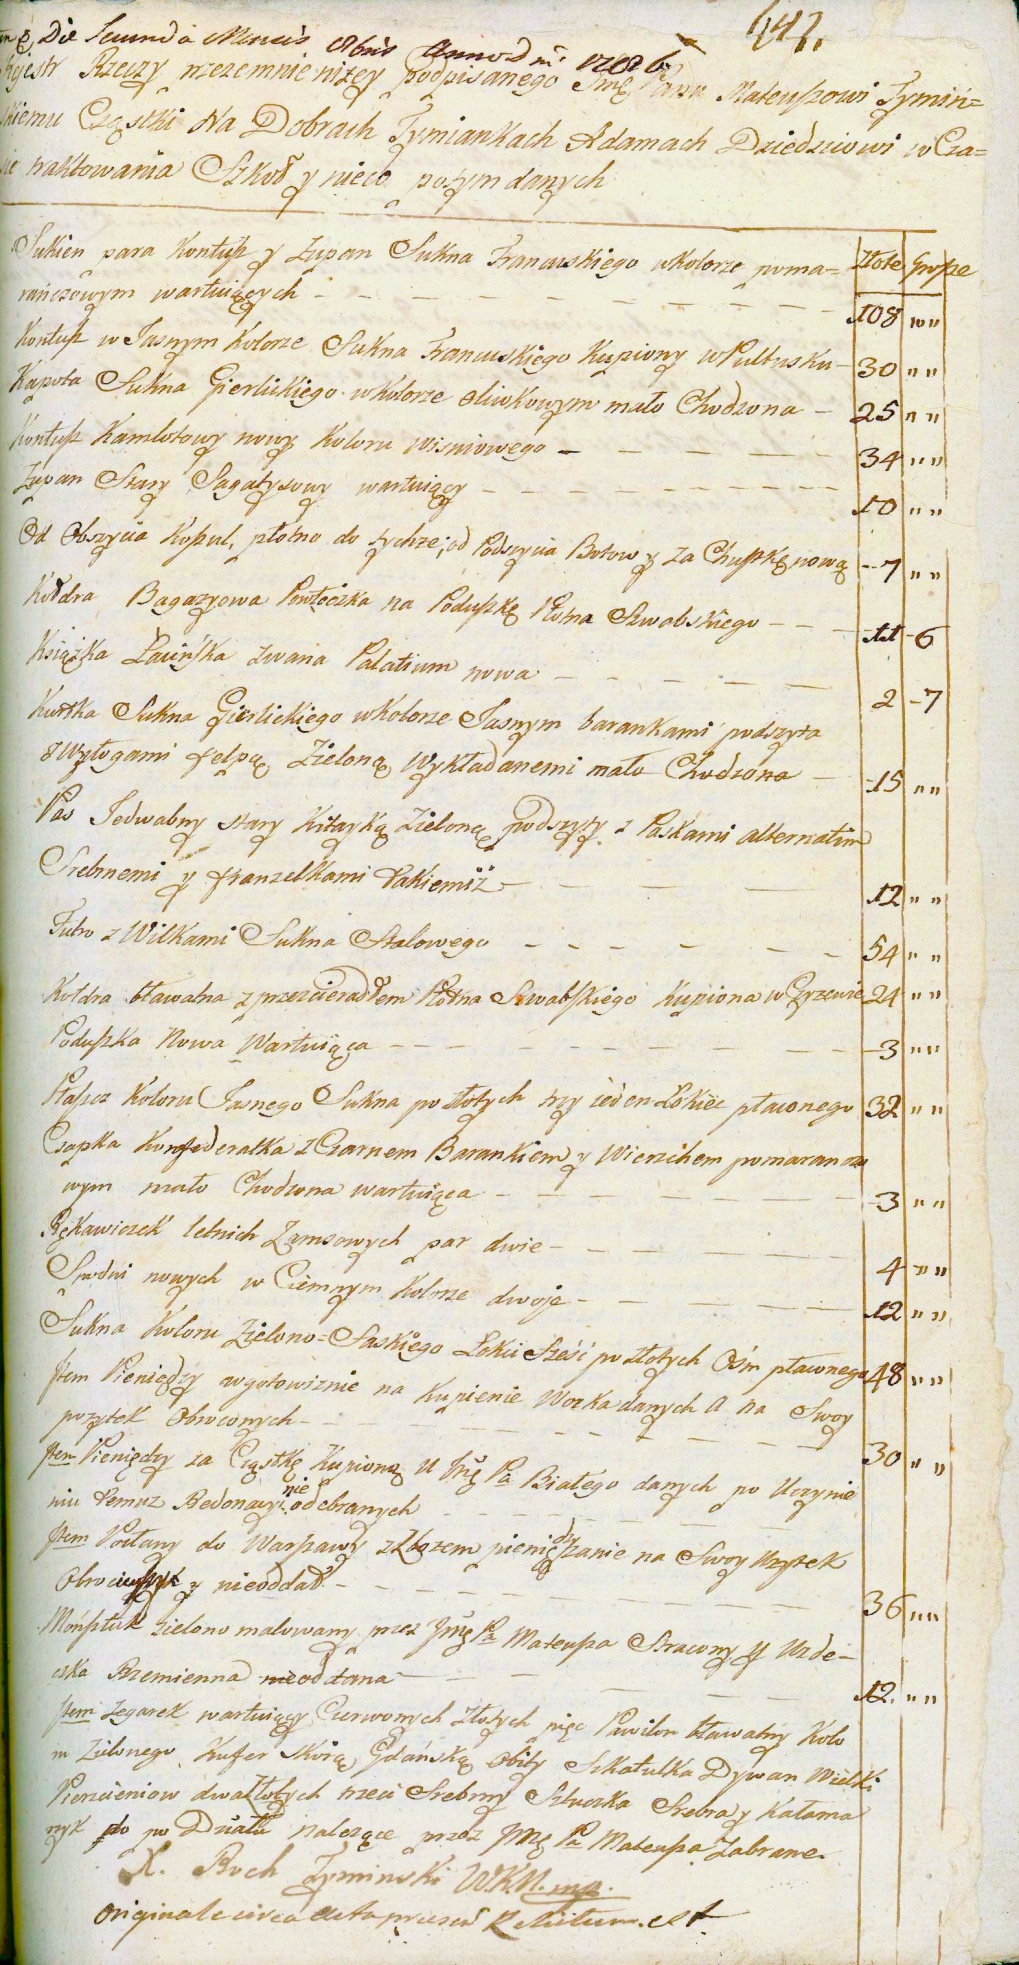 147.
Die Secunda Mensis 8bris Anno Dni 1786
Rejestr Rzeczy przezemnie niżey podpisanego Jmę Panu Mateuszowi Tymiń=
skiemu Cząstki Na Dobrach Tymiankach Adamach Dziedzicowi w Cza=
sie traktowania Szkoł y nieco potym danych
Złote Grosze
Sukien para Kontusz y Żupan Sukna Francuskiego w Kolorze poma=
rańczowym wartuiących - 108 „ „
Kontusz w Jasnym Kolorze Sukna Francuskiego Kupiony w Pułtusku - 30 „ „
Kapota Sukna Gierlickiego w Kolorze oliwkowym mało Chodzona - 25 „ „
Kontusz Kamlotowy nowy Koloru wisniowego - 34 „ „
Żupan Stary Sagatysowy wartuiący - 10 „ „
Od Obszycia Koszul, płotno do tychże; od Podszycia Botow y za Chustkę nową - 7 „ „
Kołdra Bagazyowa Powłoczka na Poduszkę Płotna Szwabskiego - 11 - 6
Książka Łacińska zwana Palatium nowa - 2 - 7
Kurtka Sukna Gierlickiego w Kolorze Jasnym barankami podszyta
z Wyłogami felpą Zieloną Wykładanemi mało Chodzona - 15 „ „
Pas Jedwabny stary Kitayką Zieloną podszyty z Paskami alternatim
Srebrnemi y franzelkami takiemiż - 12 „ „
Futro z Wilkami Sukna Stalowego - 54 „ „
Kołdra bławatna z przescieradłem Płotna Szwabskiego Kupiona w Czyzewie 24 „ „
Poduszka Nowa Wartuiąca - 3 „ „
Płaszcz Koloru Jasnego Sukna po złotych trzy ieden Łokiec płaconego 32 „ „
Czapka Konfederatka z Czarnem Barankiem y Wierzchem pomarańczo
wym mało Chodzona wartuiąca - 3 „ „
Rękawiczek letnich Zamszowych par dwie - 4 „ „
Spodni nowych w Ciemnym Kolorze dwoje - 12 „ „
Sukna Koloru Zielono=Saskiego Łokci Sześć po złotych Ośm płaconego 48 „ „
Item Pieniędzy w gotowiznie na Kupienie Worka danych a na Swoy
pozytek Obroconych - 30 „ „
Item Pieniędzy za Cząstkę Kupioną u Jmę Pa Białego danych po Uczynie
niu temuz Redonacyi nie odebranych
Item Posłany do Warszawy z Zbożem pieniędzy zanie na Swoy Uzytek
Obrociwszy y nieoddał - 36 „ „
Mońsztuk zielono malowany przez Jmę Pa Mateusza Stracony y Uzde-
czka Rzemienna nieoddana - 12. „ „
Item Zegarek wartuiący Czerwonych Złotych pięc Pawilon bławatny Kolo
ru Zielonego Kufer Skórą Gdańską obity Szkatułka Dywan Wielki
Pierscieniow dwa Złotych trzeci Srebrny Sztuczka Srebra y Kałama
rzyk do po Działu nalezące przez Jmę Pa Mateusza Zabrane.
X. Roch Tyminski W.K.N. mp.
Originale circa acta praesen Relictum. est